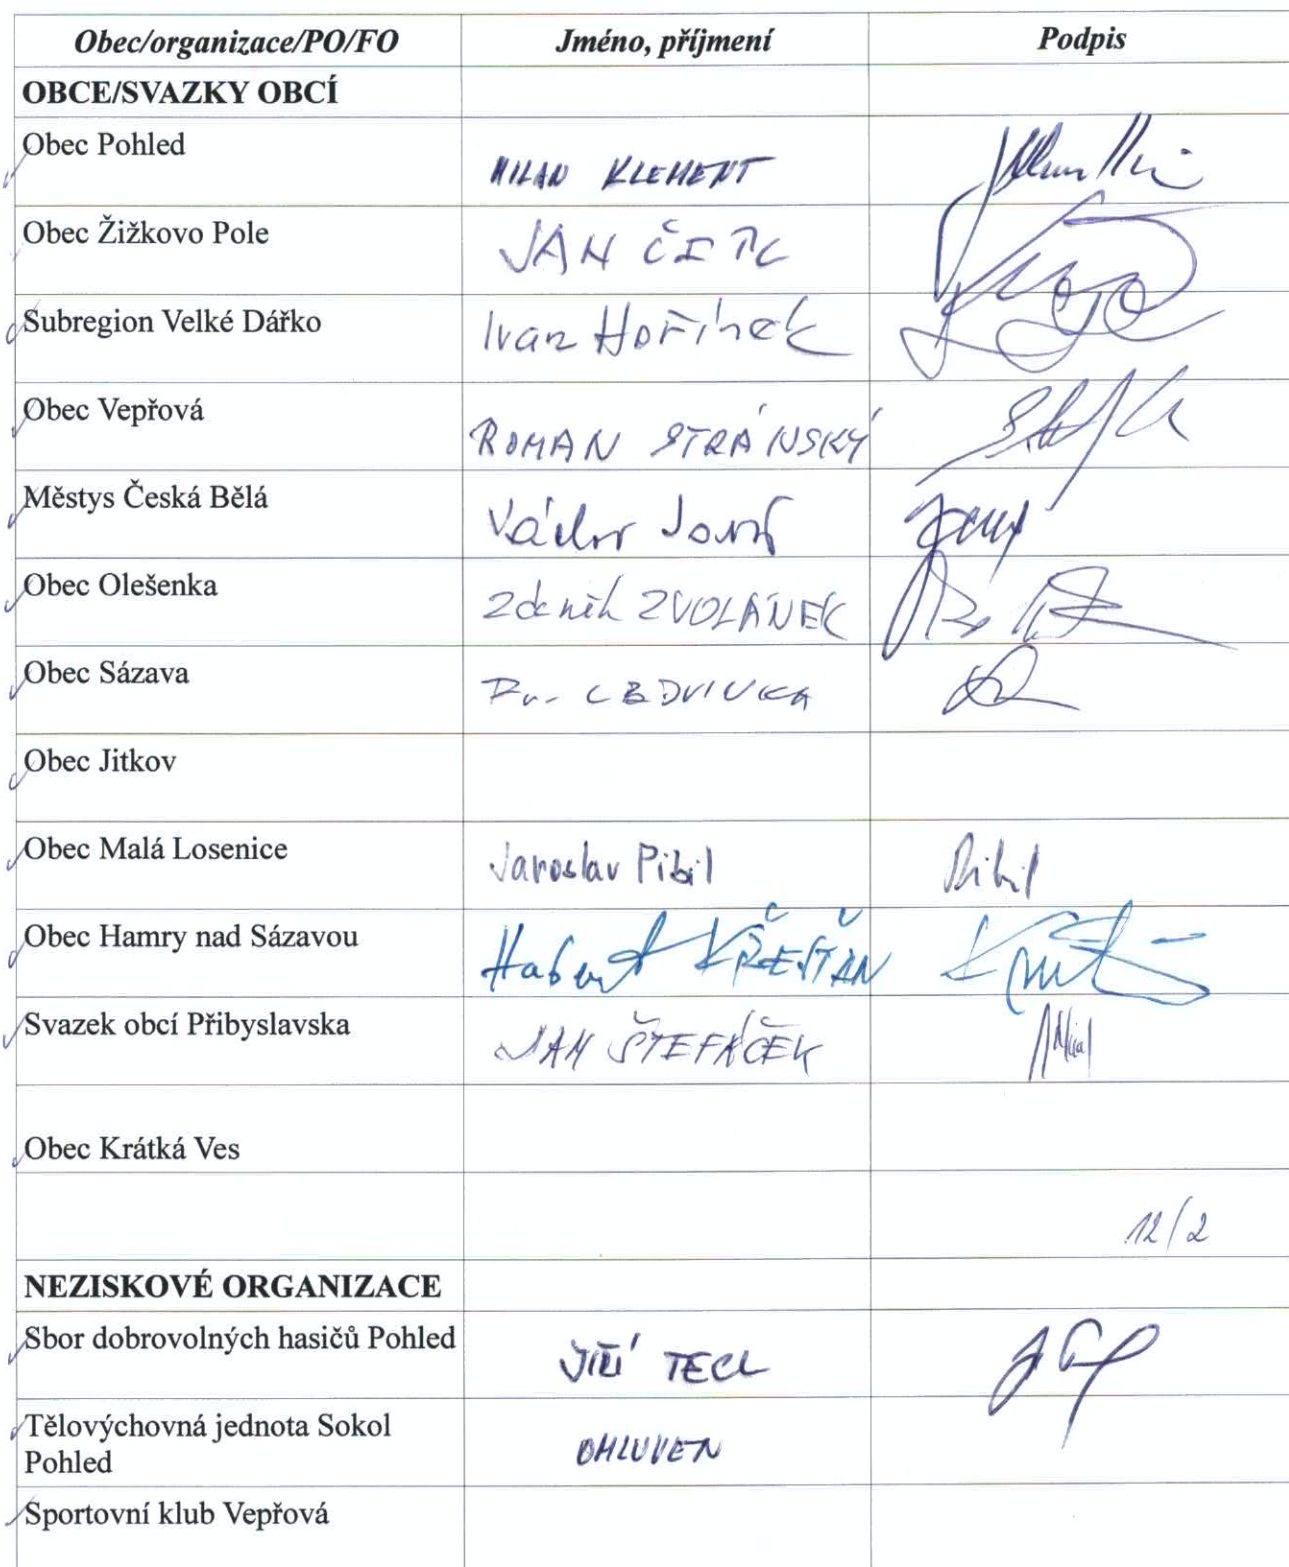 Obec/organizace/PO/FO Jméno, příjmení Podpis
OBCE/SVAZKY OBCÍ
Obec Pohled MILAN KLEMENT
Obec Žižkovo Pole JAN
Subregion Velké Dářko Ivan Hořínek
Obec Vepřová ROMAN STRÁNSKÝ
Městys Česká Bělá Václav
Obec Olešenka Zdeněk ZVOLÁNEK
Obec Sázava
Obec Jitkov
Obec Malá Losenice Jaroslav Pibil Pibil
Obec Hamry nad Sázavou Hubert KŘESŤAN
Svazek obcí Přibyslavska JAN ŠTEFÁČEK
Obec Krátká Ves
12/2
NEZISKOVÉ ORGANIZACE
Sbor dobrovolných hasičů Pohled JIŘÍ TECL
Tělovýchovná jednota Sokol
Pohled OMLUVEN
Sportovní klub Vepřová